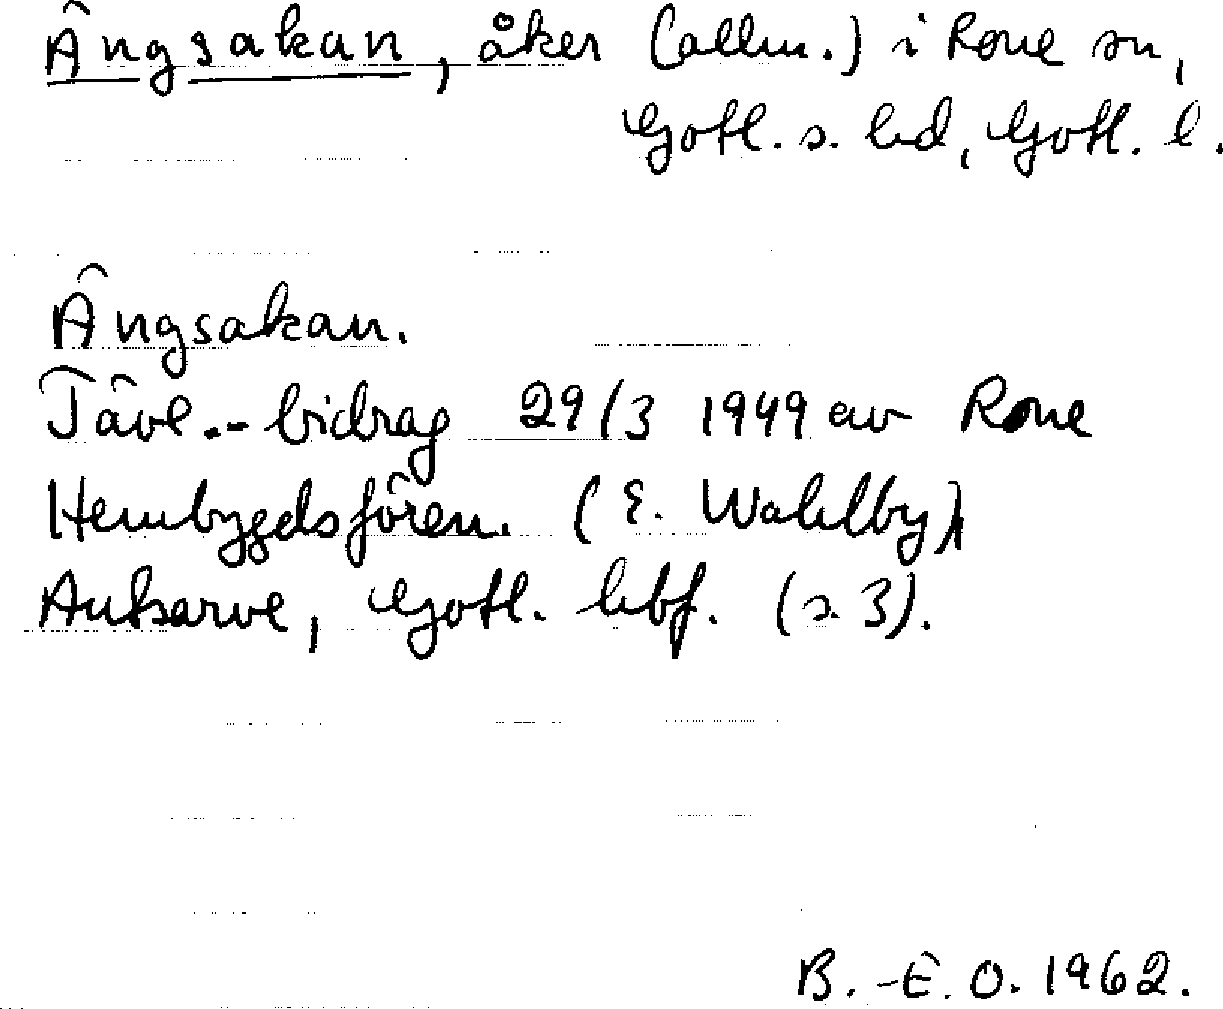 Ängsakan, åker (allm.) i Rone sn,
Gotl. s. hd, Gotl. l.
Ängsakan.
Tävl.-bidrag 29/3 1949 av Rone
Hembygdsfören. (E. Wahlby)
Auksarve, Gotl. hbf. (s. 3).
B.-E. O. 1962.